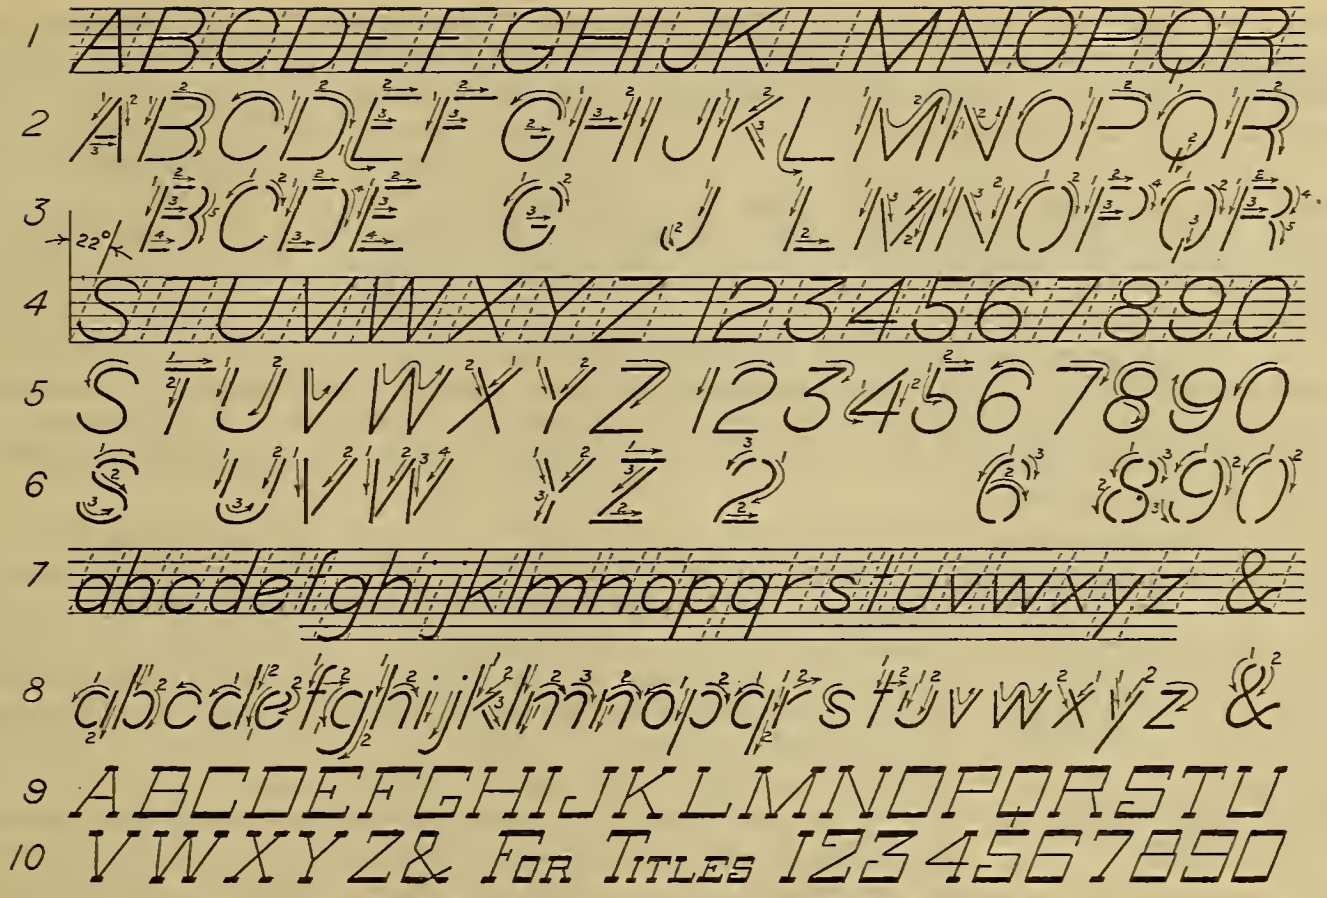 1 A B C D E F G H I J K L M N O P Q R
2 A B C D E F G H I J K L M N O P Q R
3 B C D E G J L M N O P Q R
22°
4 S T U V W X Y Z 1 2 3 4 5 6 7 8 9 0
5 S T U V W X Y Z 1 2 3 4 5 6 7 8 9 0
6 S U V W Y Z 2 6 8 9 0
7 a b c d e f g h i j k l m n o p q r s t u v w x y z &
8 a b c d e f g h i j k l m n o p q r s t u v w x y z &
9 A B C D E F G H I J K L M N O P Q R S T U
10 V W X Y Z & FOR TITLES 1 2 3 4 5 6 7 8 9 0